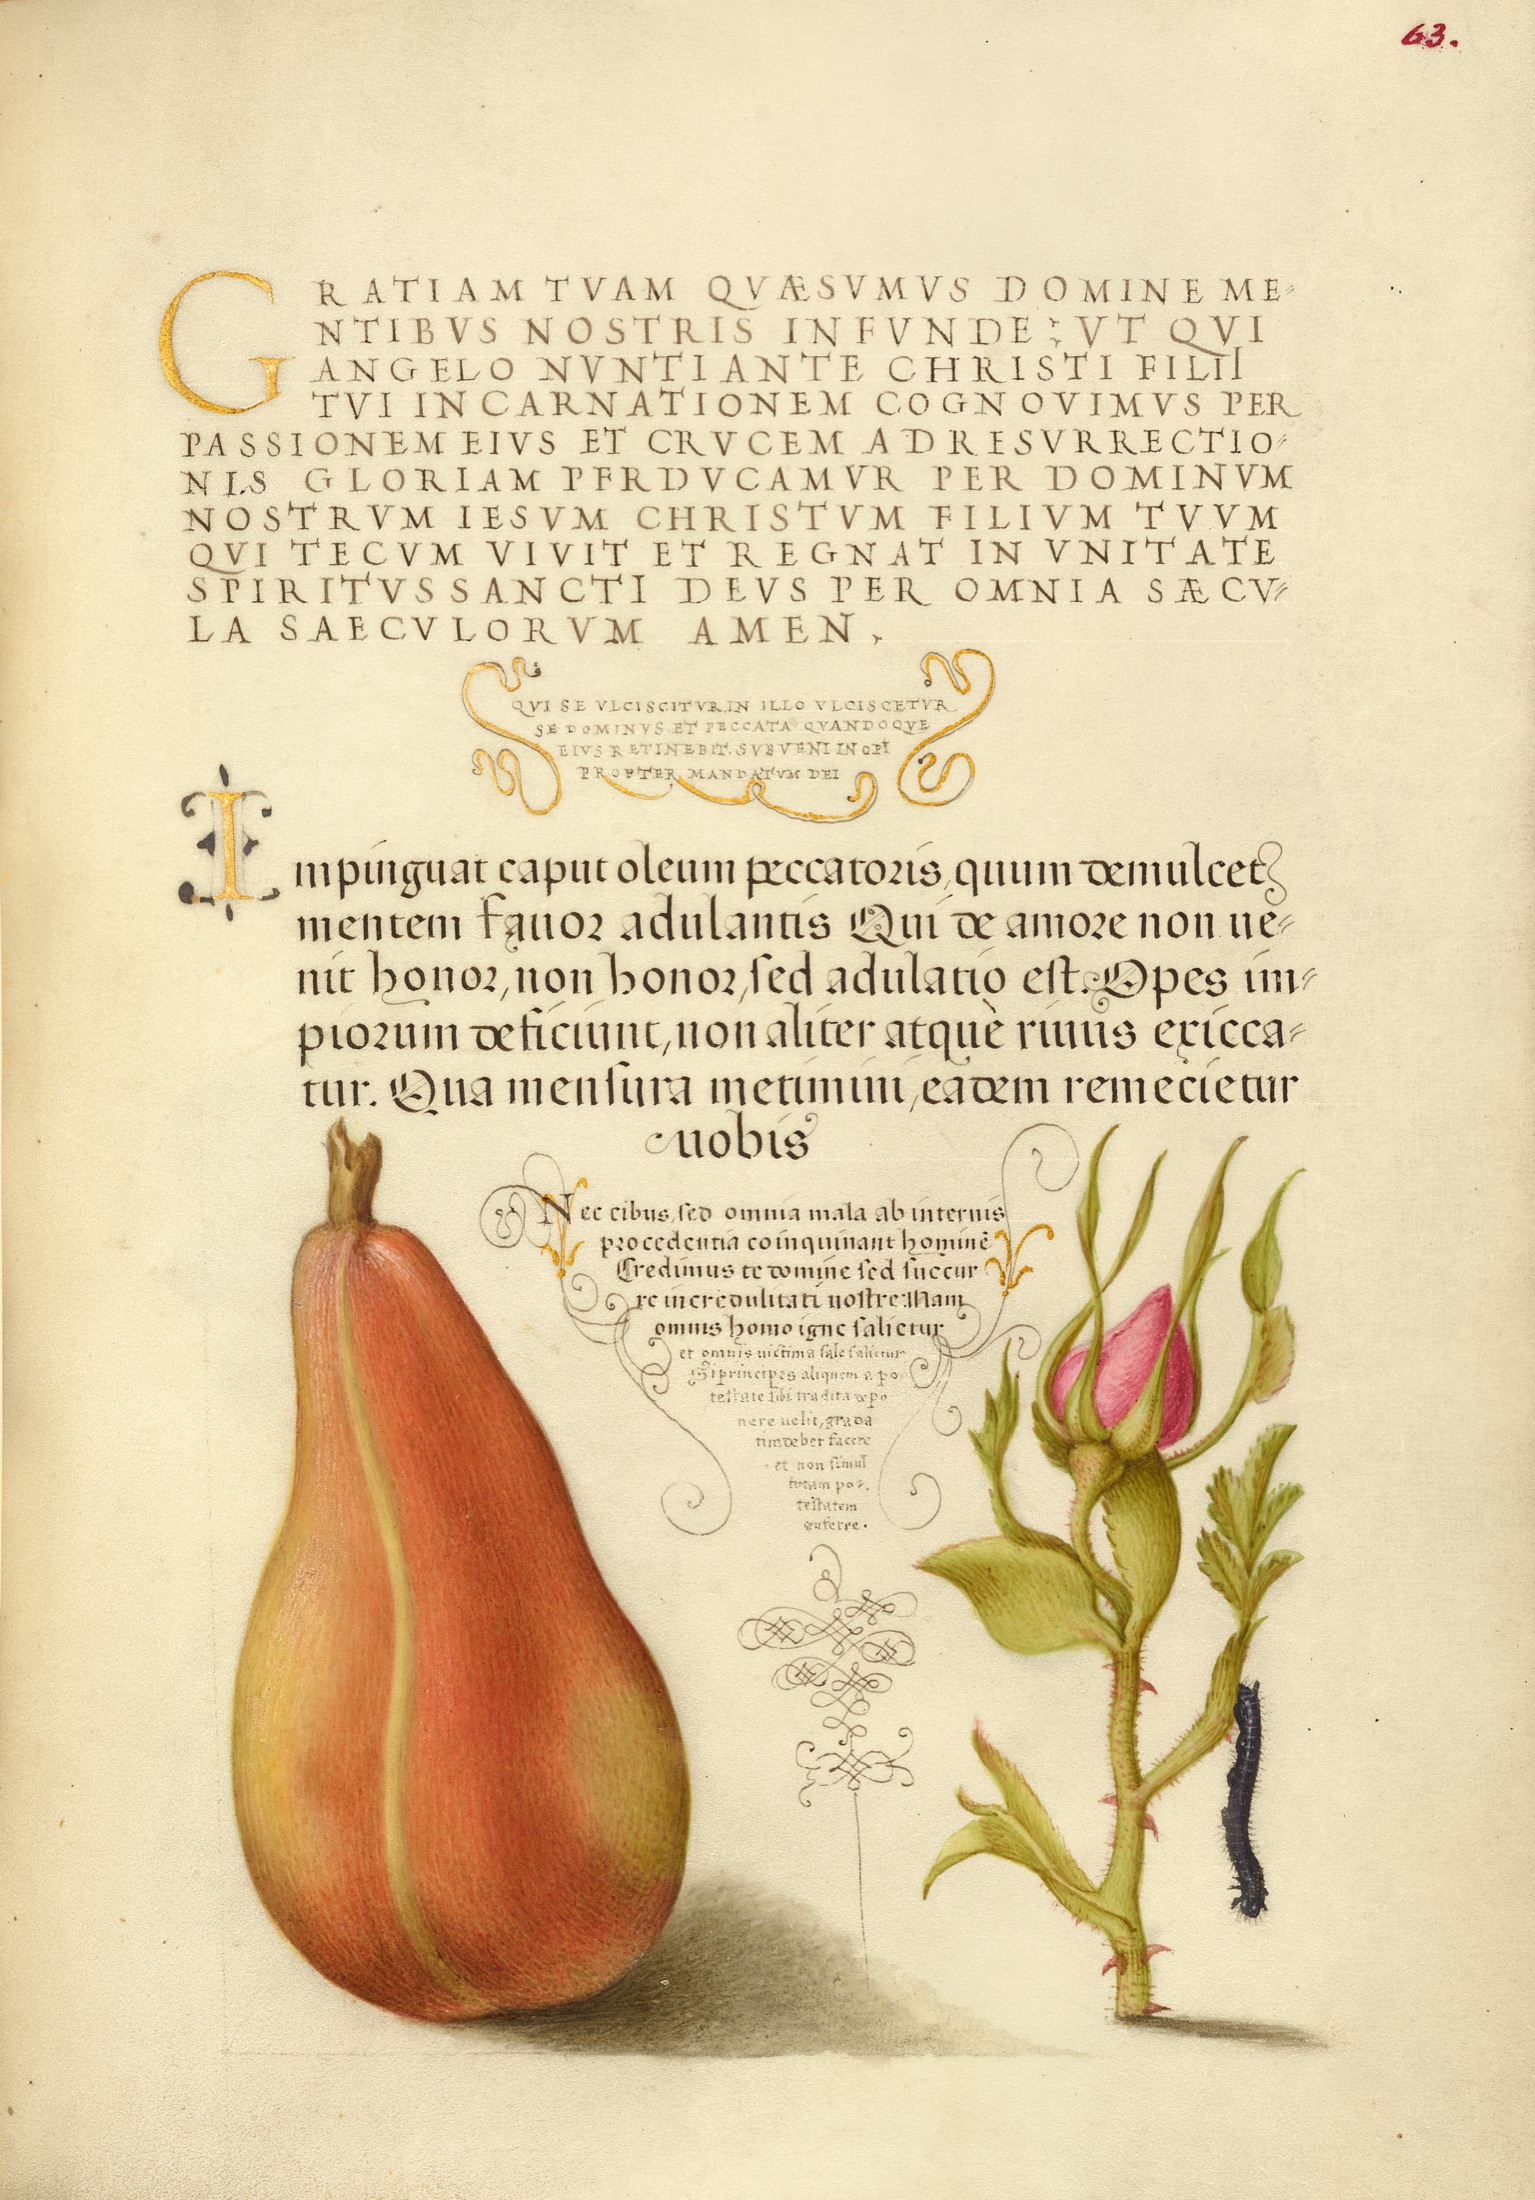 63.
GRATIAM TVAM QVÆSVMVS DOMINE ME-
NTIBVS NOSTRIS INFVNDE; VT QVI
ANGELO NVNTIANTE CHRISTI FILII
TVI INCARNATIONEM COGNOVIMVS PER
PASSIONEM EIVS ET CRVCEM AD RESVRRECTIO-
NIS GLORIAM PERDVCAMVR PER DOMINVM
NOSTRVM IESVM CHRISTVM FILIVM TVVM
QVI TECVM VIVIT ET REGNAT IN VNITATE
SPIRITVS SANCTI DEVS PER OMNIA SÆCV-
LA SAECVLORVM AMEN.
QVI SE VLCISCITVR, IN ILLO VLCISCETVR
SE DOMINVS. ET PECCATA QVANDOQVE
EIVS RETINEBIT. SVBVENI INOPI
PROPTER MANDATVM DEI
Impinguat caput oleum peccatoris, quum demulcet
mentem fauor adulantis Qui de amore non ue-
nit honor, non honor, sed adulatio est. Opes im-
piorum deficiunt, non aliter atquè riuus exicca-
tur. Qua mensura metimini, eadem remecietur
uobis
Nec cibus, sed omnia mala ab internis
procedentia coinquinant hominē
Credimus te domine sed succur
re incredulitati nostre. Nam
omnis homo igne salietur
et omnis uictima sale salietur
Si principes aliquem a po
testate sibi tradita depo
nere uelit, grada
tim debet facere
et non simul
totam po-
testatem
auferre.